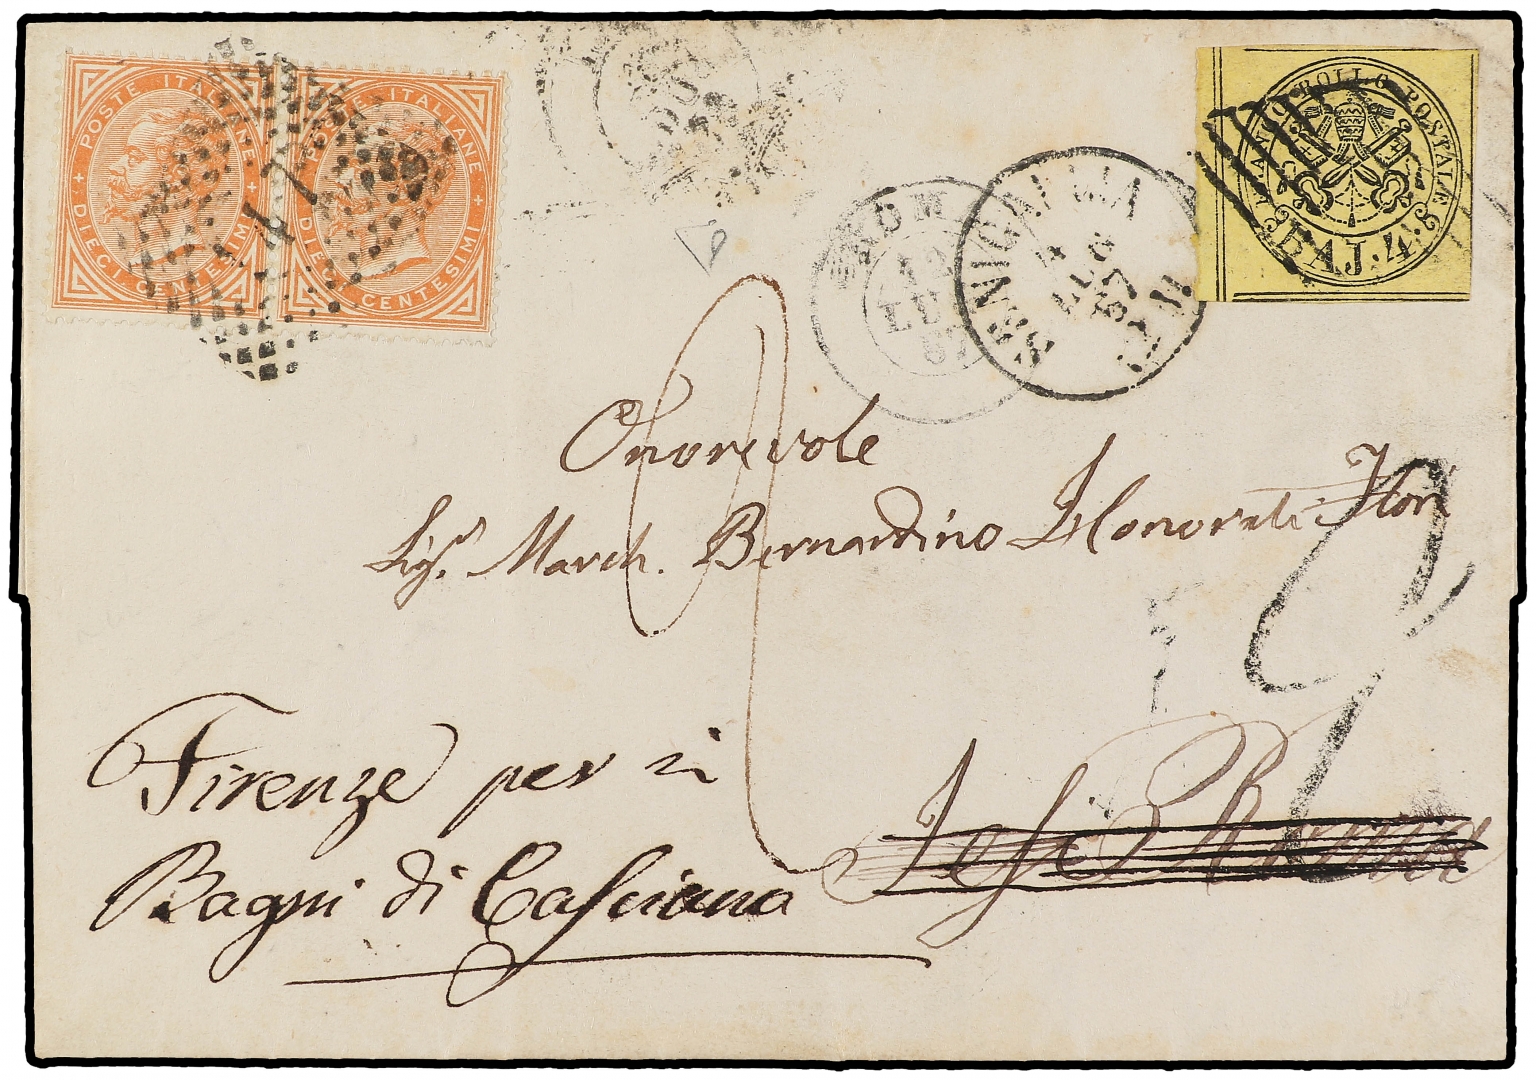 POSTE ITALIANE
DIECI CENTESIMI
POSTE ITALIANE
DIECI CENTESIMI
47
FRANCO BOLLO POSTALE
BAJ. 4.
ROMA
12
LUG
67
SENIGALLIA
LUG
67
Onorevole
Sigr. March. Bernardino Honorati
Jesi Roma
Firenze per i
Bagni di Casciana